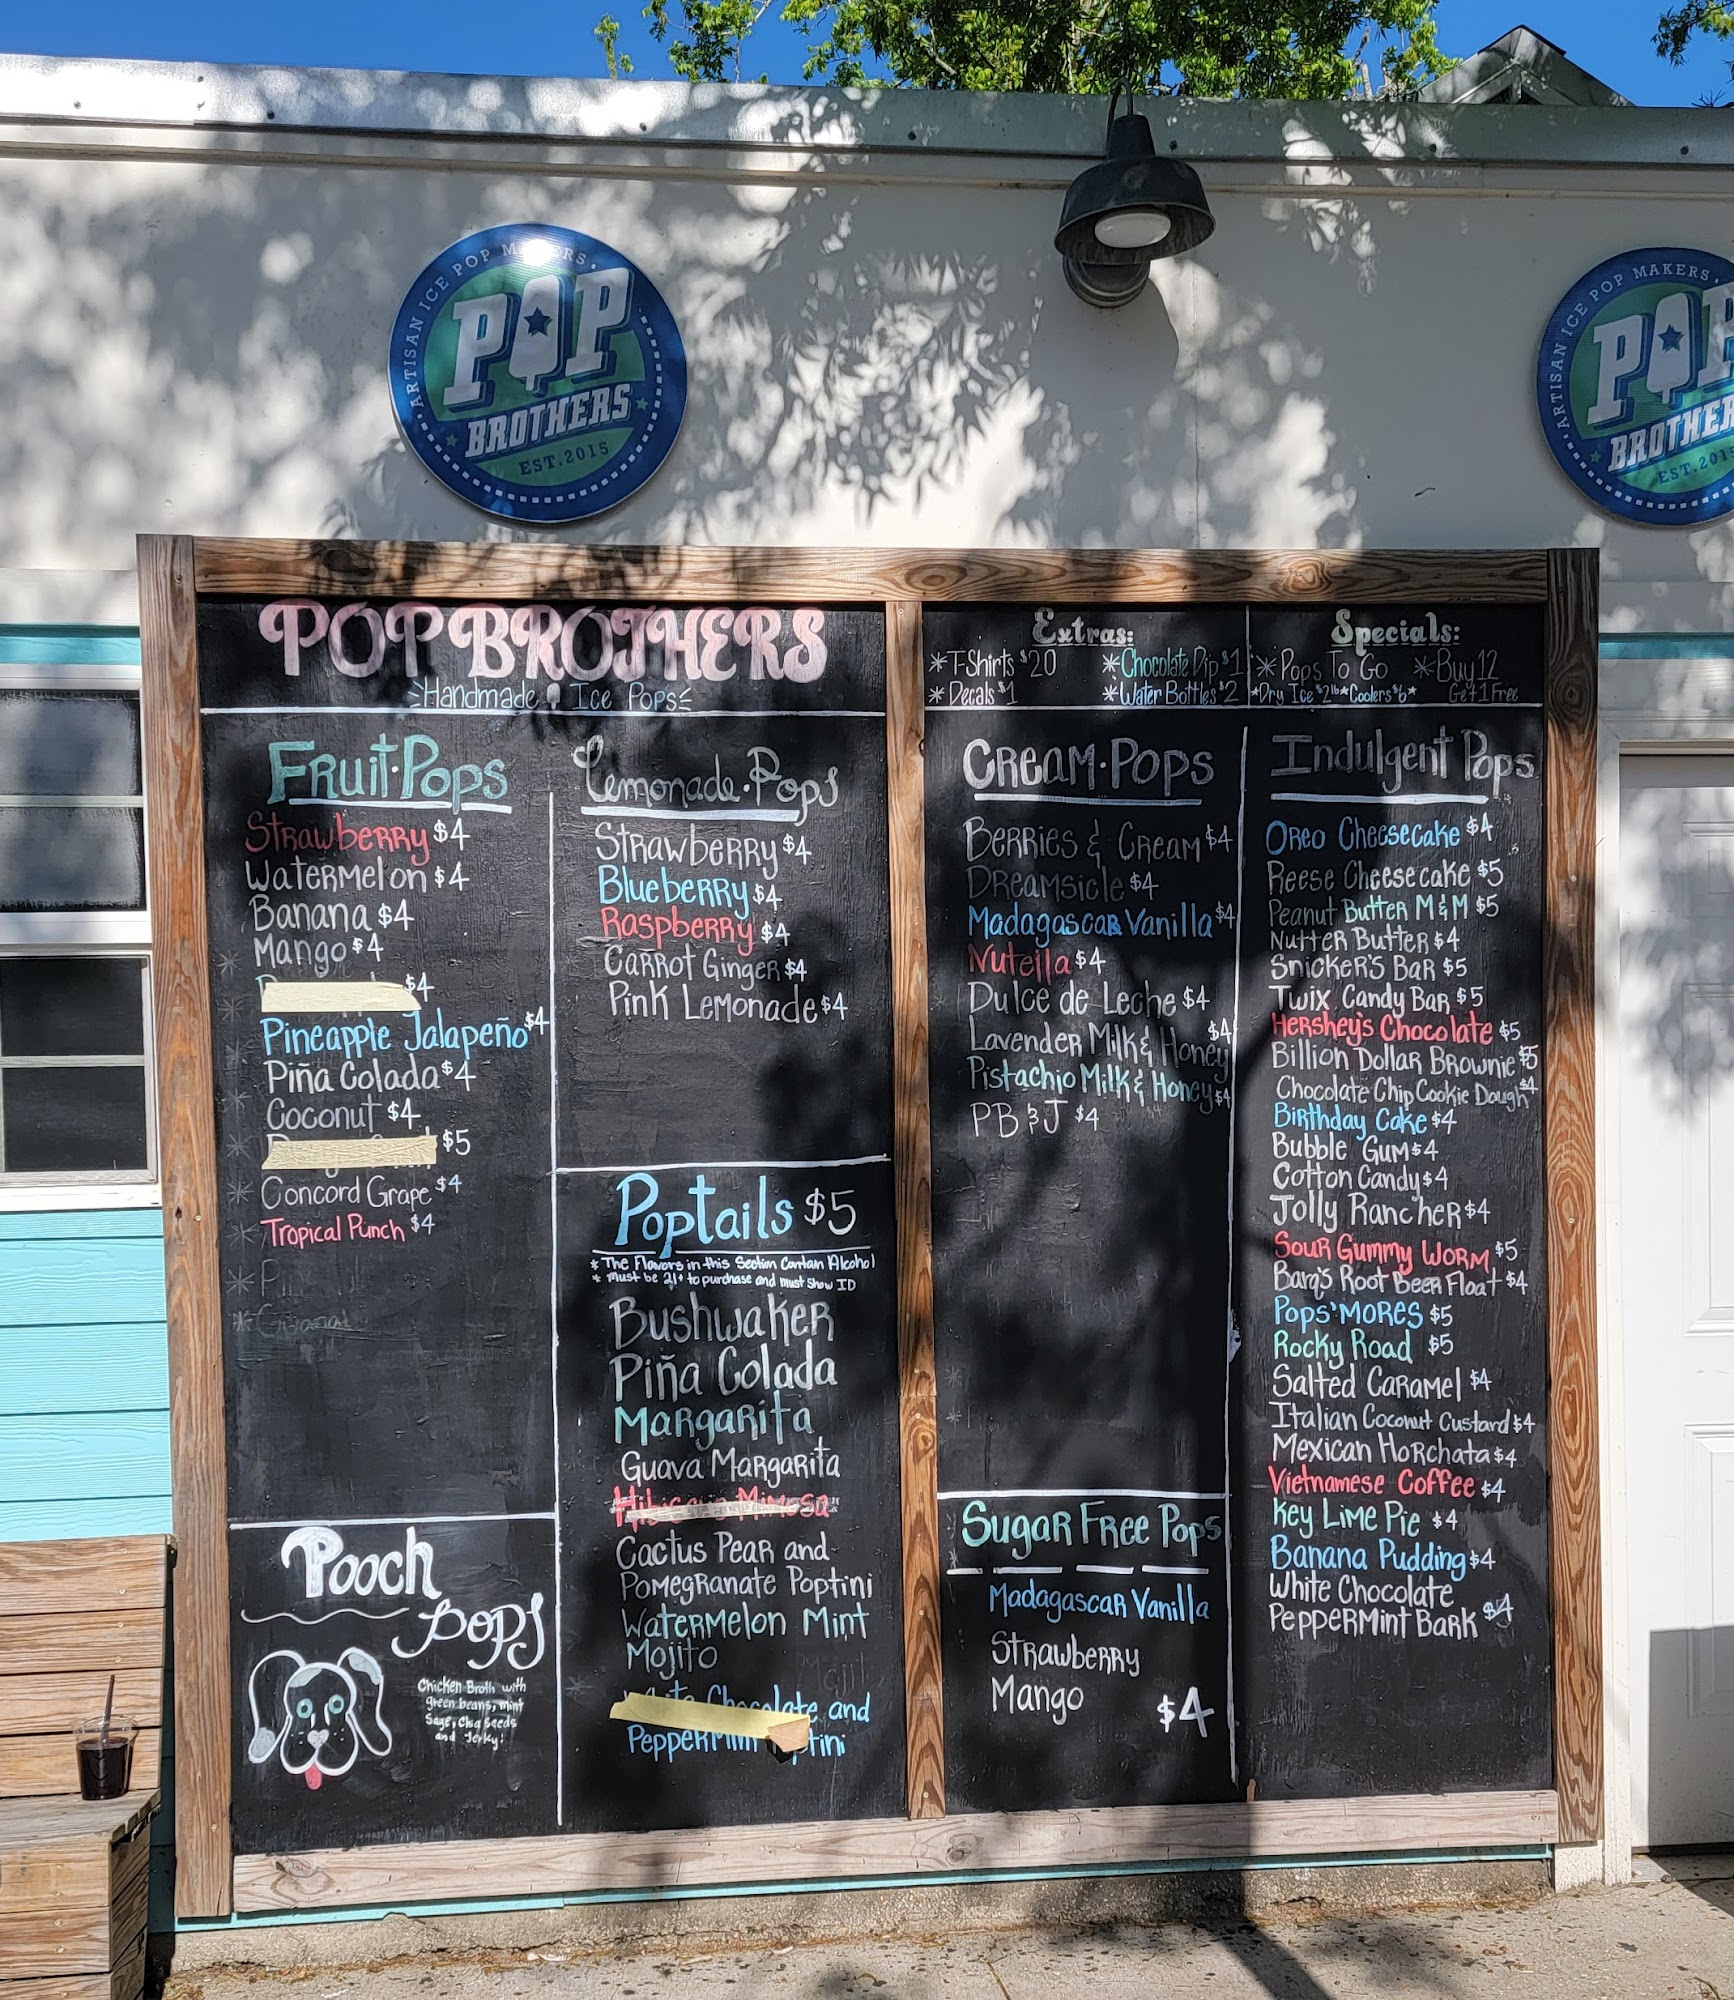 ARTISAN ICE POP MAKERS
POP
BROTHERS
EST. 2015
ARTISAN ICE POP MAKERS
POP
BROTHERS
EST. 2015
POP BROTHERS
Handmade Ice Pops
Fruit·Pops
Strawberry $4
Watermelon $4
Banana $4
Mango $4
$4
Pineapple Jalapeño $4
Piña Colada $4
Coconut $4
$5
Concord Grape $4
Tropical Punch $4
Guanab
Pooch
Pops
Chicken Broth with
green beans, mint
Sage, Chia Seeds
and Jerky!
Lemonade·Pops
Strawberry $4
Blueberry $4
Raspberry $4
Carrot Ginger $4
Pink Lemonade $4
Poptails $5
* The Flavors in this Section Contain Alcohol
* Must be 21+ to purchase and must show ID
Bushwaker
Piña Colada
Margarita
Guava Margarita
Hibiscus Mimosa
Cactus Pear and
Pomegranate Poptini
Watermelon Mint
Mojito
White Chocolate and
Peppermint Poptini
Extras:
*T-Shirts $20 *Chocolate Dip $1
*Decals $1 *Water Bottles $2
Specials:
*Pops To Go *Buy 12
*Dry Ice $2 lb *Coolers $6* Get 1 Free
Cream·Pops
Berries & Cream $4
Dreamsicle $4
Madagascar Vanilla $4
Nutella $4
Dulce de Leche $4
Lavender Milk & Honey $4
Pistachio Milk & Honey $4
PB & J $4
Sugar Free Pops
Madagascar Vanilla
Strawberry
Mango
$4
Indulgent Pops
Oreo Cheesecake $4
Reese Cheesecake $5
Peanut Butter M&M $5
Nutter Butter $4
Snicker's Bar $5
Twix Candy Bar $5
Hershey's Chocolate $5
Billion Dollar Brownie $5
Chocolate Chip Cookie Dough $4
Birthday Cake $4
Bubble Gum $4
Cotton Candy $4
Jolly Rancher $4
Sour Gummy Worm $5
Barq's Root Beer Float $4
Pops'MORES $5
Rocky Road $5
Salted Caramel $4
Italian Coconut Custard $4
Mexican Horchata $4
Vietnamese Coffee $4
Key Lime Pie $4
Banana Pudding $4
White Chocolate
Peppermint Bark $4